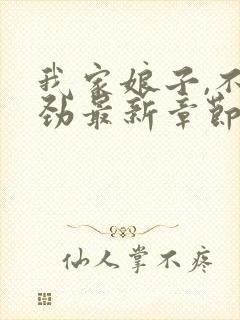 我家娘子,不
劲最新章节
仙人掌不疼